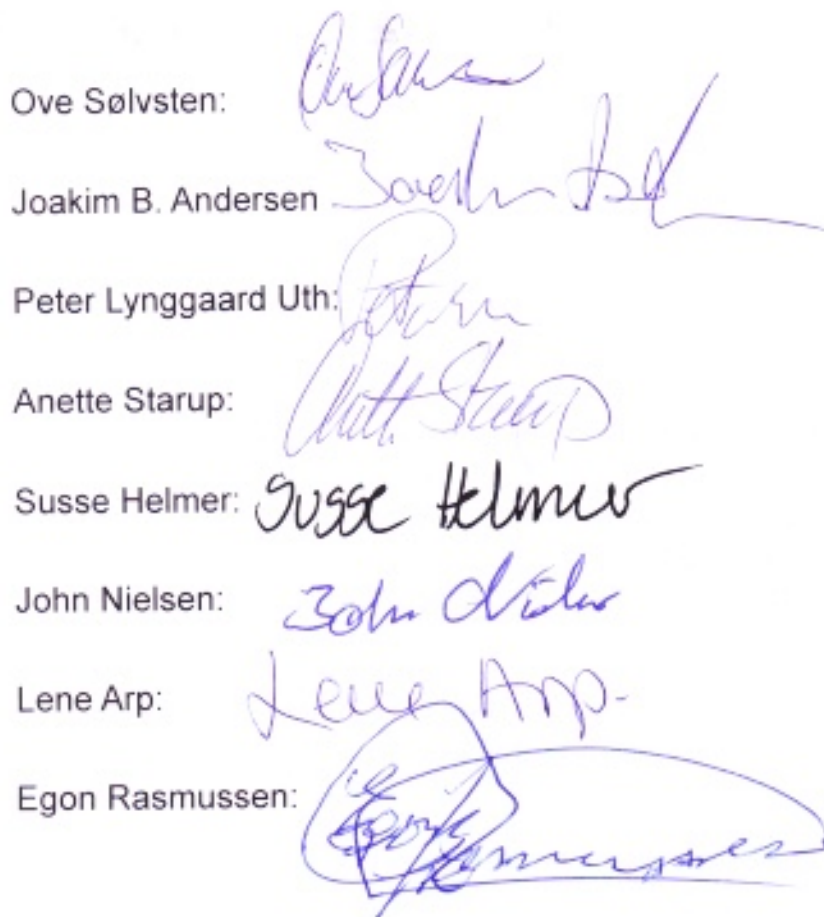 Ove Sølvsten:
Joakim B. Andersen
Peter Lynggaard Uth:
Anette Starup:
Susse Helmer: Susse Helmer
John Nielsen: John
Lene Arp: Lene Arp.
Egon Rasmussen: Egon Rasmussen